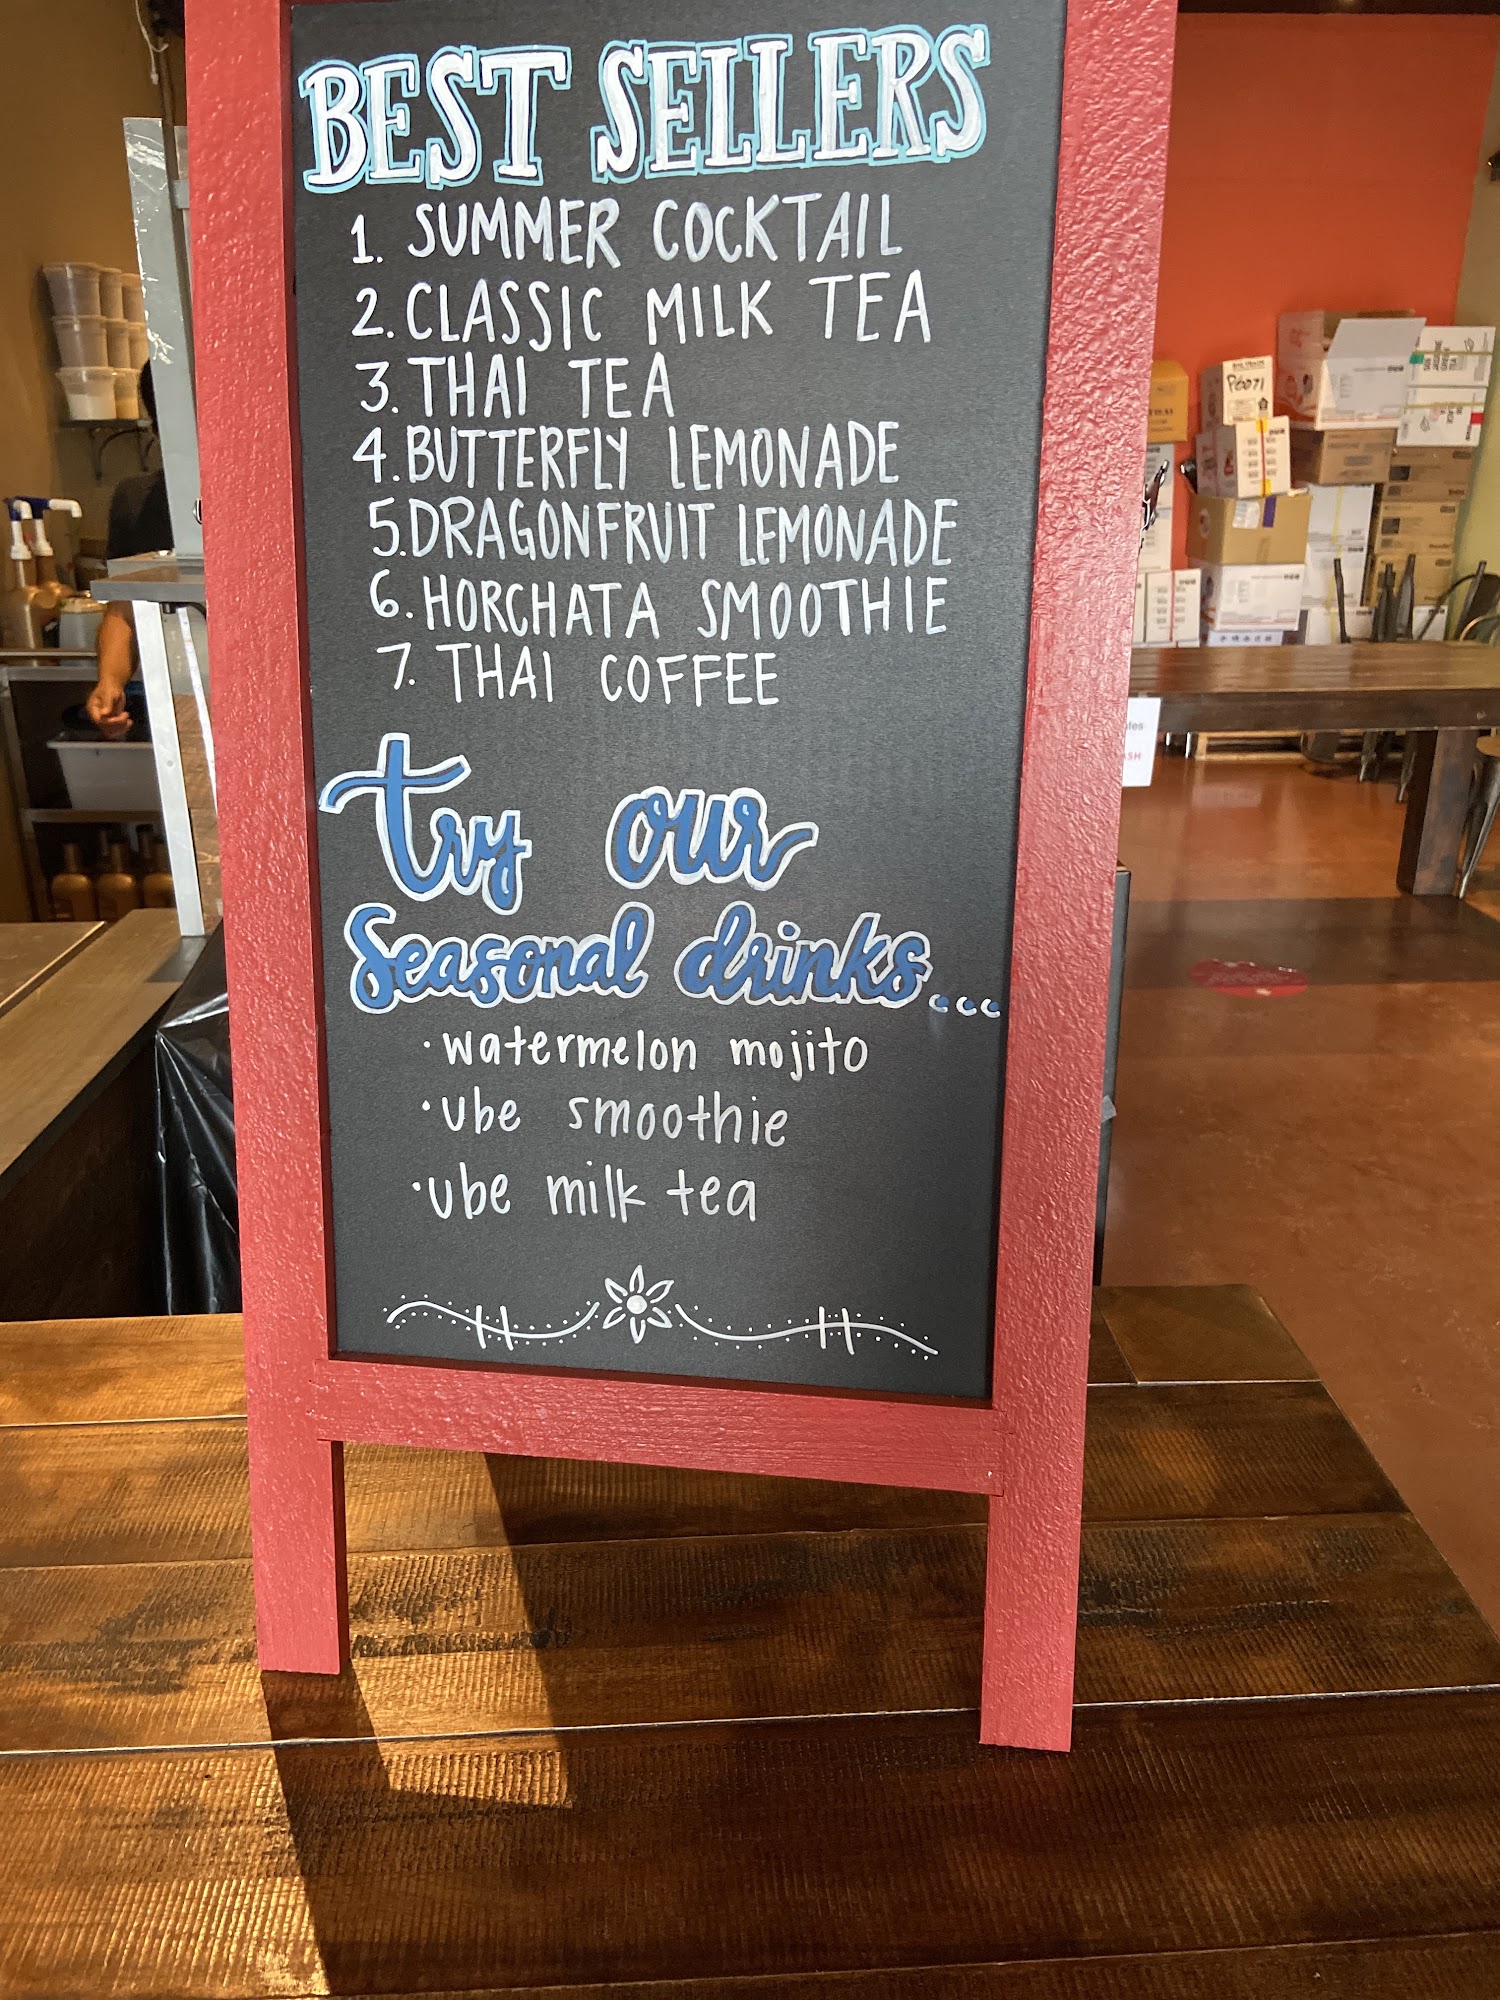 BEST SELLERS
1. SUMMER COCKTAIL
2. CLASSIC MILK TEA
3. THAI TEA
4. BUTTERFLY LEMONADE
5. DRAGONFRUIT LEMONADE
6. HORCHATA SMOOTHIE
7. THAI COFFEE
try our
Seasonal drinks...
· watermelon mojito
· ube smoothie
· ube milk tea